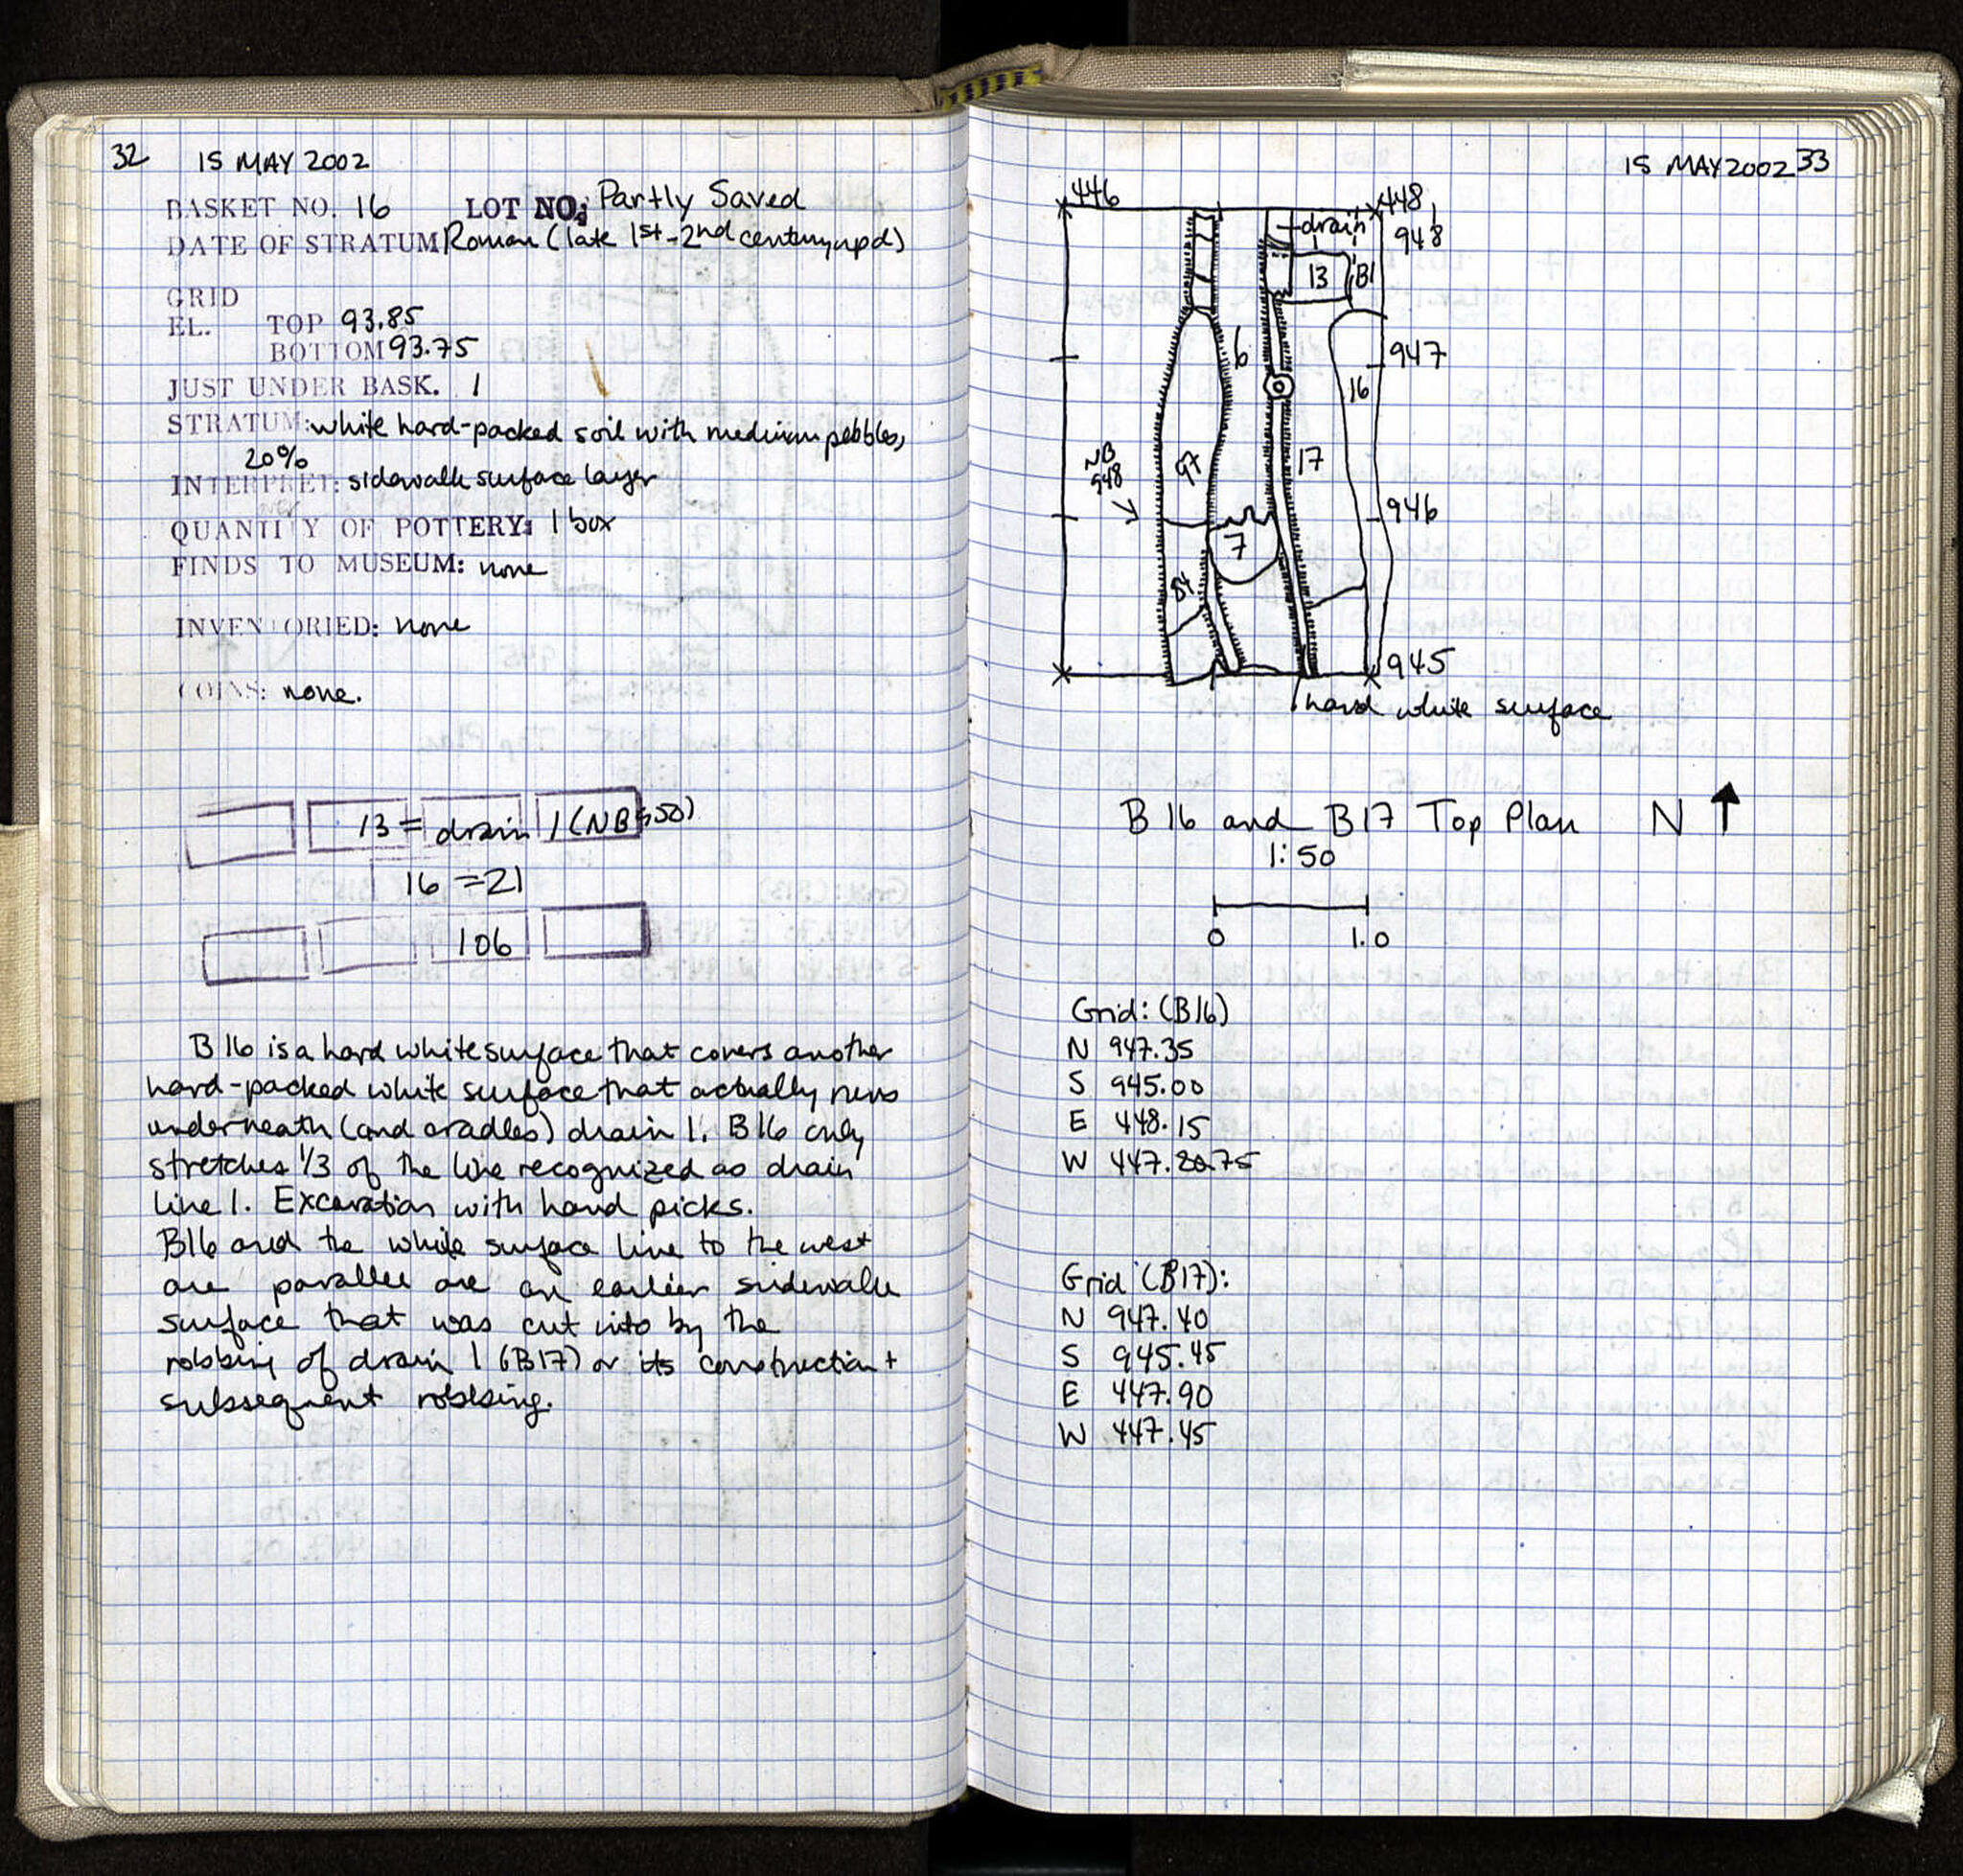 32 15 MAY 2002
BASKET NO. 16 LOT NO: Partly Saved
DATE OF STRATUM Roman (late 1st-2nd century, npd)
GRID
EL. TOP 93.85
BOTTOM 93.75
JUST UNDER BASK. 1
STRATUM: white hard-packed soil with medium pebbles,
20%
INTERPRET: sidewalk surface layer
QUANTITY OF POTTERY: 1 box
FINDS TO MUSEUM: none
INVENTORIED: none
COINS: none.
13 = drain 1 (NB 950)
16 = 21
106
B 16 is a hard white surface that covers another
hard-packed white surface that actually runs
underneath (and cradles) drain 1. B 16 only
stretches 1/3 of the line recognized as drain
line 1. Excavation with hand picks.
B16 and the white surface line to the west
are parallel are an earlier sidewalk
surface that was cut into by the
robbing of drain 1 (B17) or its construction +
subsequent robbing.
15 MAY 2002 33
446
448
948
drain
13
B1
6
947
16
NB
948
97
17
946
7
84
945
hard white surface
B 16 and B17 Top Plan N
1:50
0 1.0
Grid: (B16)
N 947.35
S 945.00
E 448.15
W 447.75
Grid (B17):
N 947.40
S 945.45
E 447.90
W 447.45